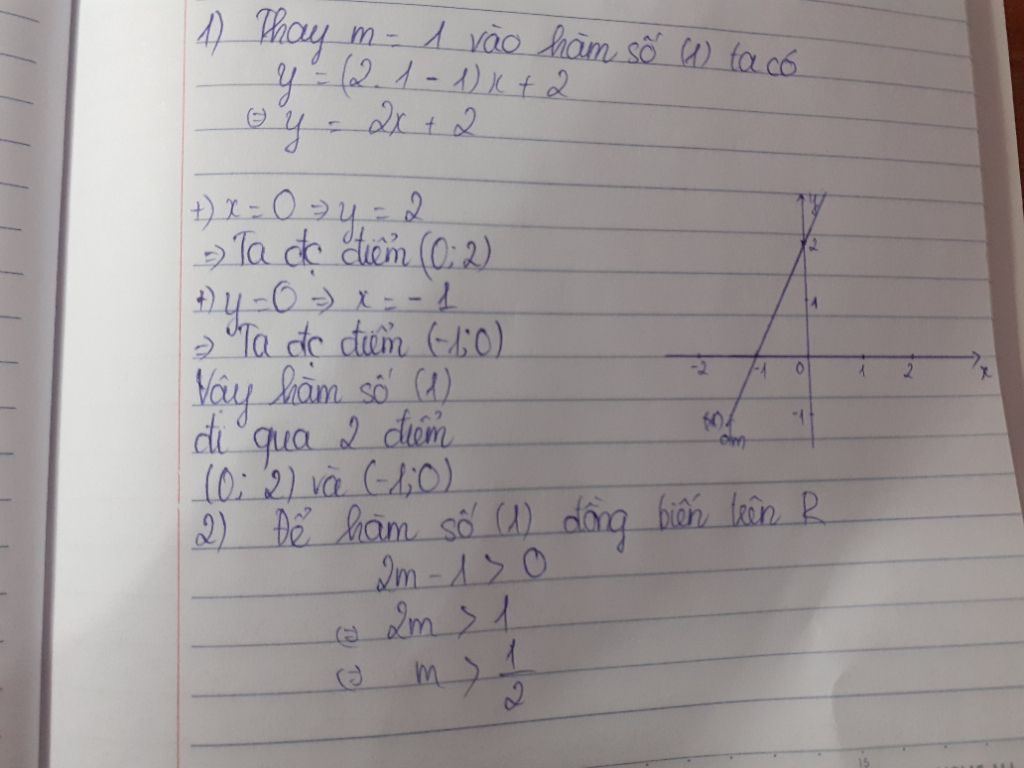 1) Thay m = 1 vào hàm số (1) ta có
y = (2.1 - 1)x + 2
⇔ y = 2x + 2
+) x = 0 ⇒ y = 2
⇒ Ta đc điểm (0; 2)
+) y = 0 ⇒ x = - 1
⇒ Ta đc điểm (-1; 0)
Vậy hàm số (1)
đi qua 2 điểm
(0; 2) và (-1; 0)
y
2
1
-2 -1 0 1 2 x
-1
2) Để hàm số (1) đồng biến trên R
2m - 1 > 0
⇔ 2m > 1
⇔ m > 1/2
15